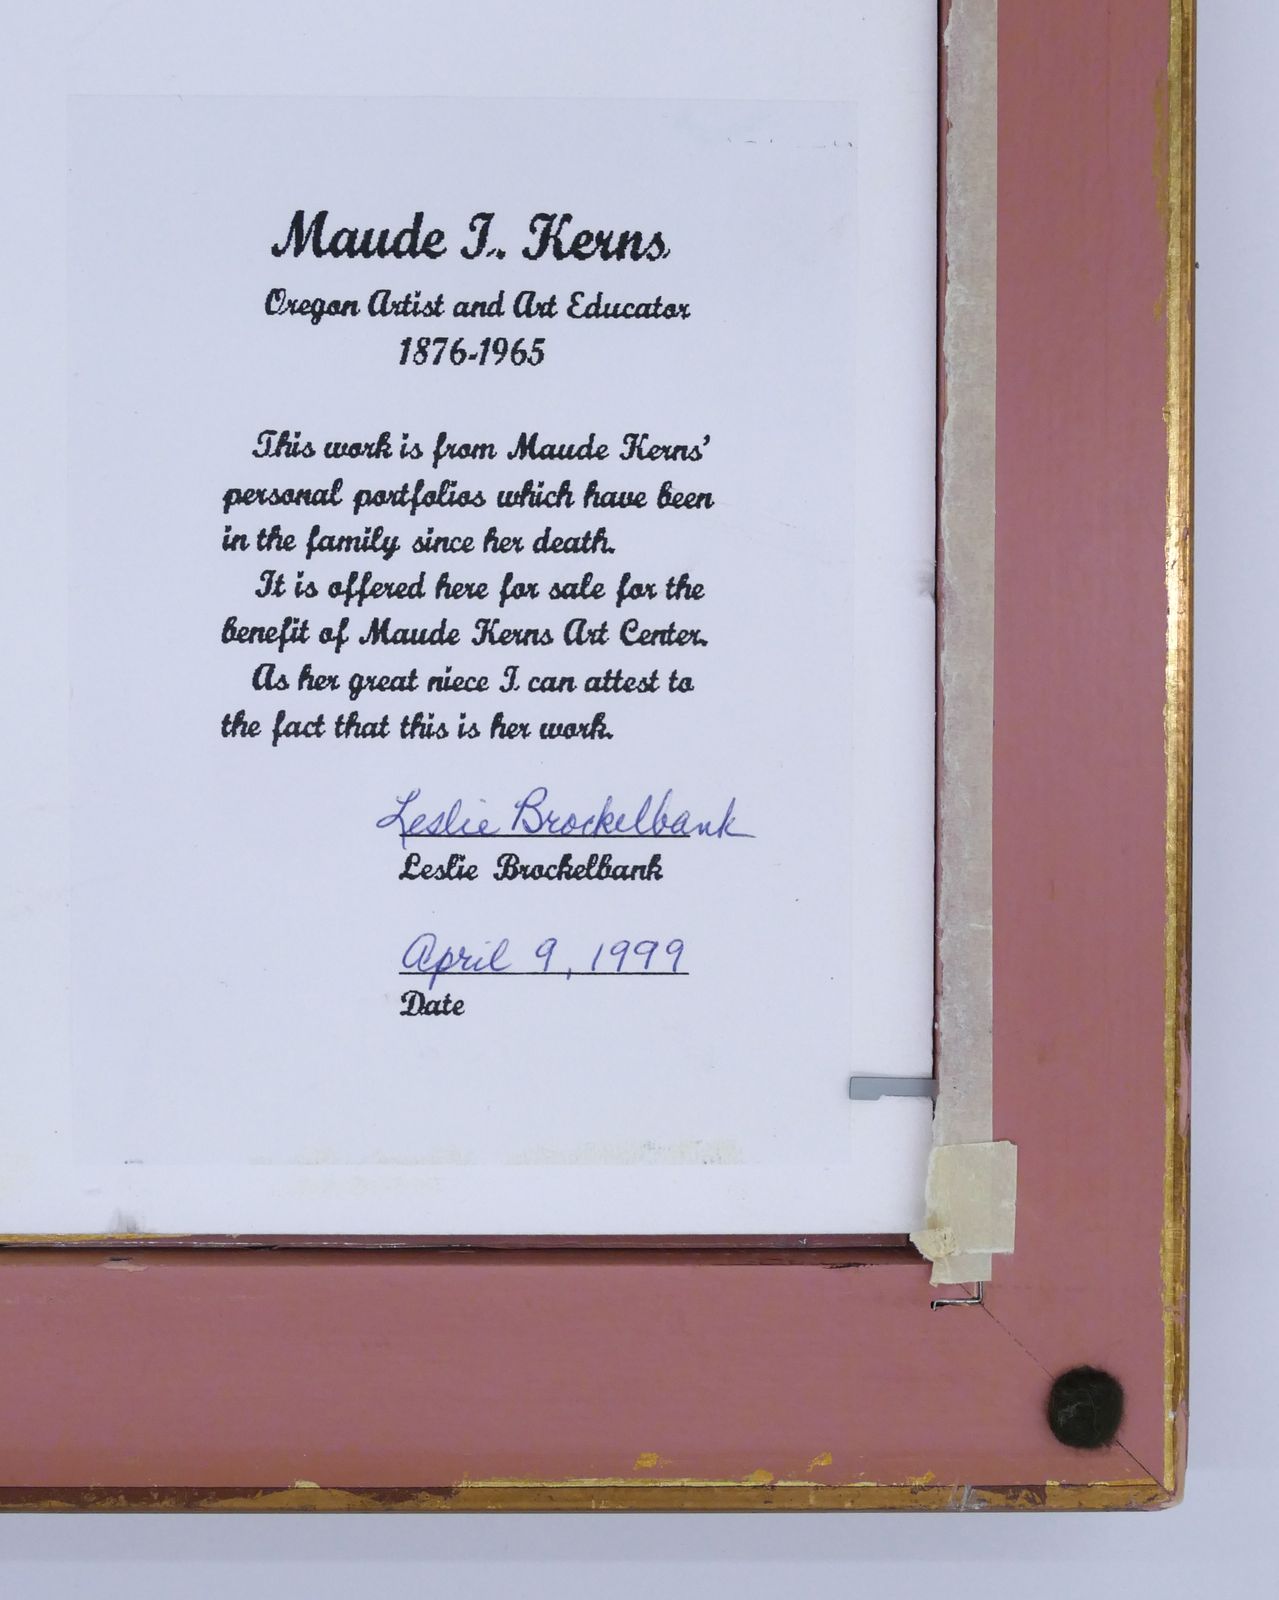 Maude I. Kerns
Oregon Artist and Art Educator
1876-1965
This work is from Maude Kerns'
personal portfolios which have been
in the family since her death.
It is offered here for sale for the
benefit of Maude Kerns Art Center.
As her great niece I can attest to
the fact that this is her work.
Leslie Brockelbank
Leslie Brockelbank
April 9, 1999
Date